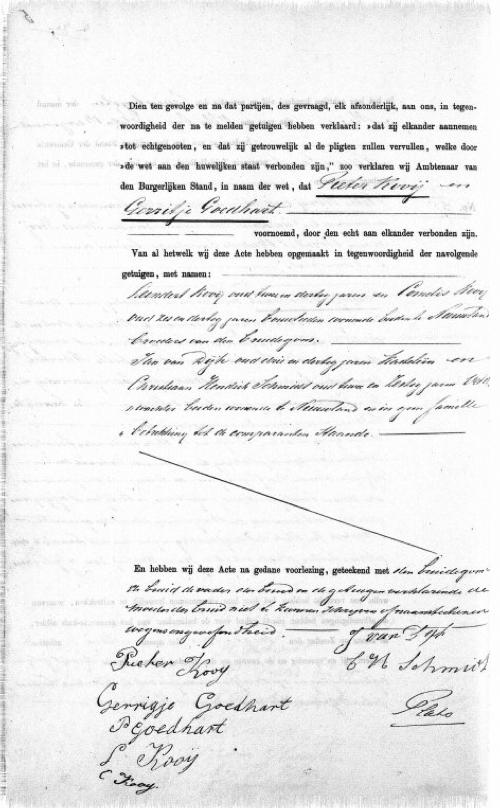 Dien ten gevolge en na dat partijen, des gevraagd, elk afzonderlijk, aan ons, in tegen-
woordigheid der na te melden getuigen hebben verklaard: »dat zij elkander aannemen
»tot echtgenooten, en dat zij getrouwelijk al de pligten zullen vervullen, welke door
»de wet aan den huwelijken staat verbonden zijn,” zoo verklaren wij Ambtenaar van
den Burgerlijken Stand, in naam der wet, dat Pieter Kooij en
Gerritje Goedhart.
voornoemd, door den echt aan elkander verbonden zijn.
Van al hetwelk wij deze Acte hebben opgemaakt in tegenwoordigheid der navolgende
getuigen, met namen:
Leendert Kooij oud twee en dertig jaren en Cornelis Kooij
oud zes en dertig jaren bouwlieden wonende beiden te Nieuwland
broeders van den bruidegom.
Jan van Dijk oud drie en dertig jaren en
Christiaan Hendrik Schmidt oud twee en jaren
beiden wonende te Nieuwland en in geen familie
betrekking tot de comparanten staande.
En hebben wij deze Acte na gedane voorlezing, geteekend met den bruidegom
de bruid de vader der bruid en de getuigen verklarende de
moeder der bruid niet te kunnen schrijven of naamteekenen
wegens ongeoefendheid. J van Dijk
Pieter Kooy C H Schmidt
Gerrigje Goedhart
P Goedhart Plato
L Kooij
C Kooy.